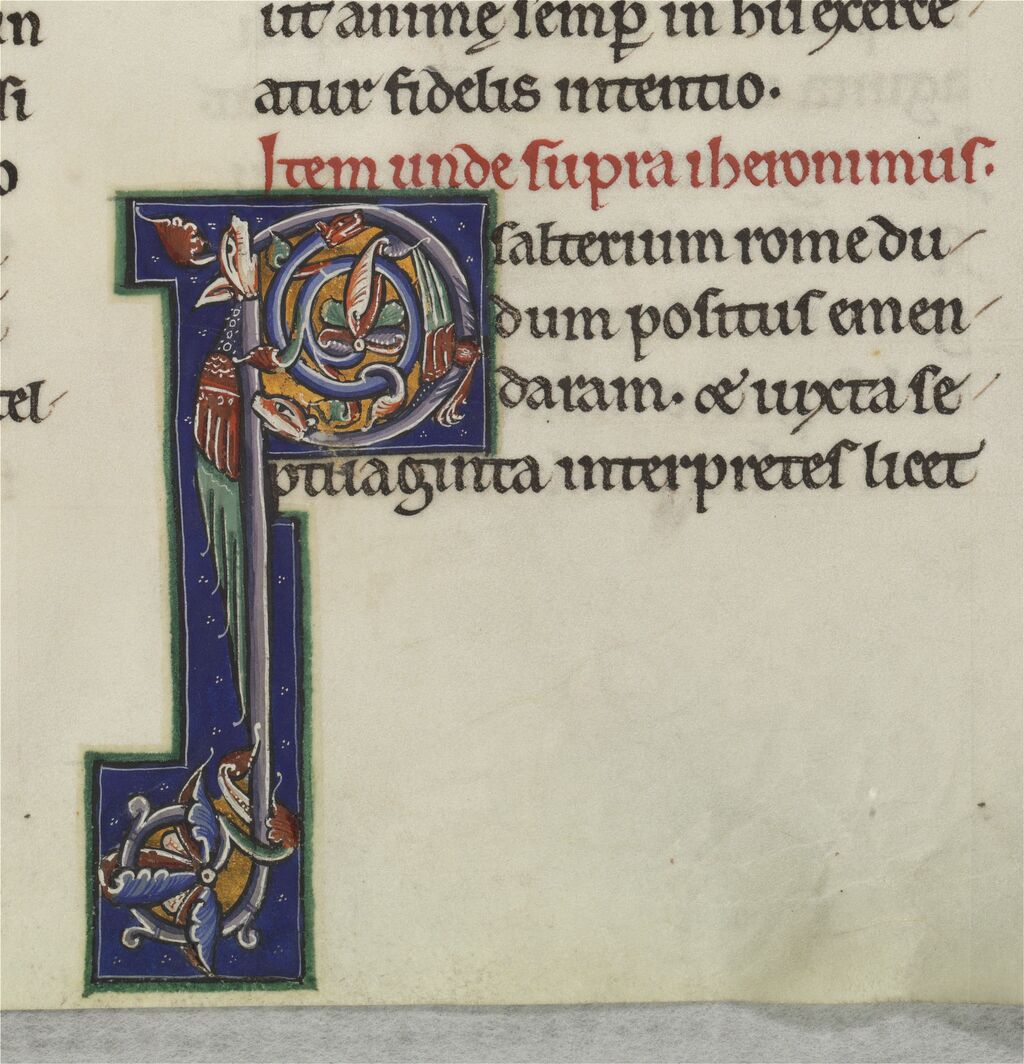 in
si
o
tel
ut animę semp in his exerce
atur fidelis intentio.
Item unde supra iheronimus.
Psalterium rome du
dum positus emen
daram. & iuxta se
ptuaginta interpretes licet